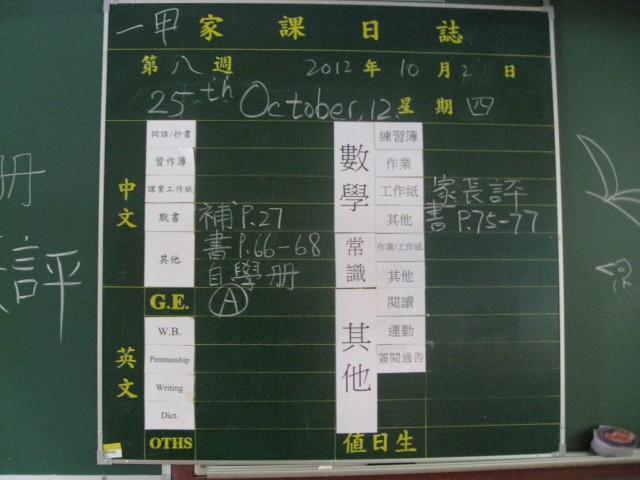 一甲 家課日誌
第八週 2012年10月2 日
25th October, 12. 星期四
中文
詞語/抄書
習作簿
課業工作紙
默書 補 P.27
其他 書 P.66-68
自學册
G.E. A
英文
W.B.
Penmanship
Writing
Dict.
OTHS
數學
練習簿
作業
工作紙 家長評
其他 書 P.75-77
常識
作業/工作紙
其他
其他
閱讀
運動
簽閱通告
值日生
册
評